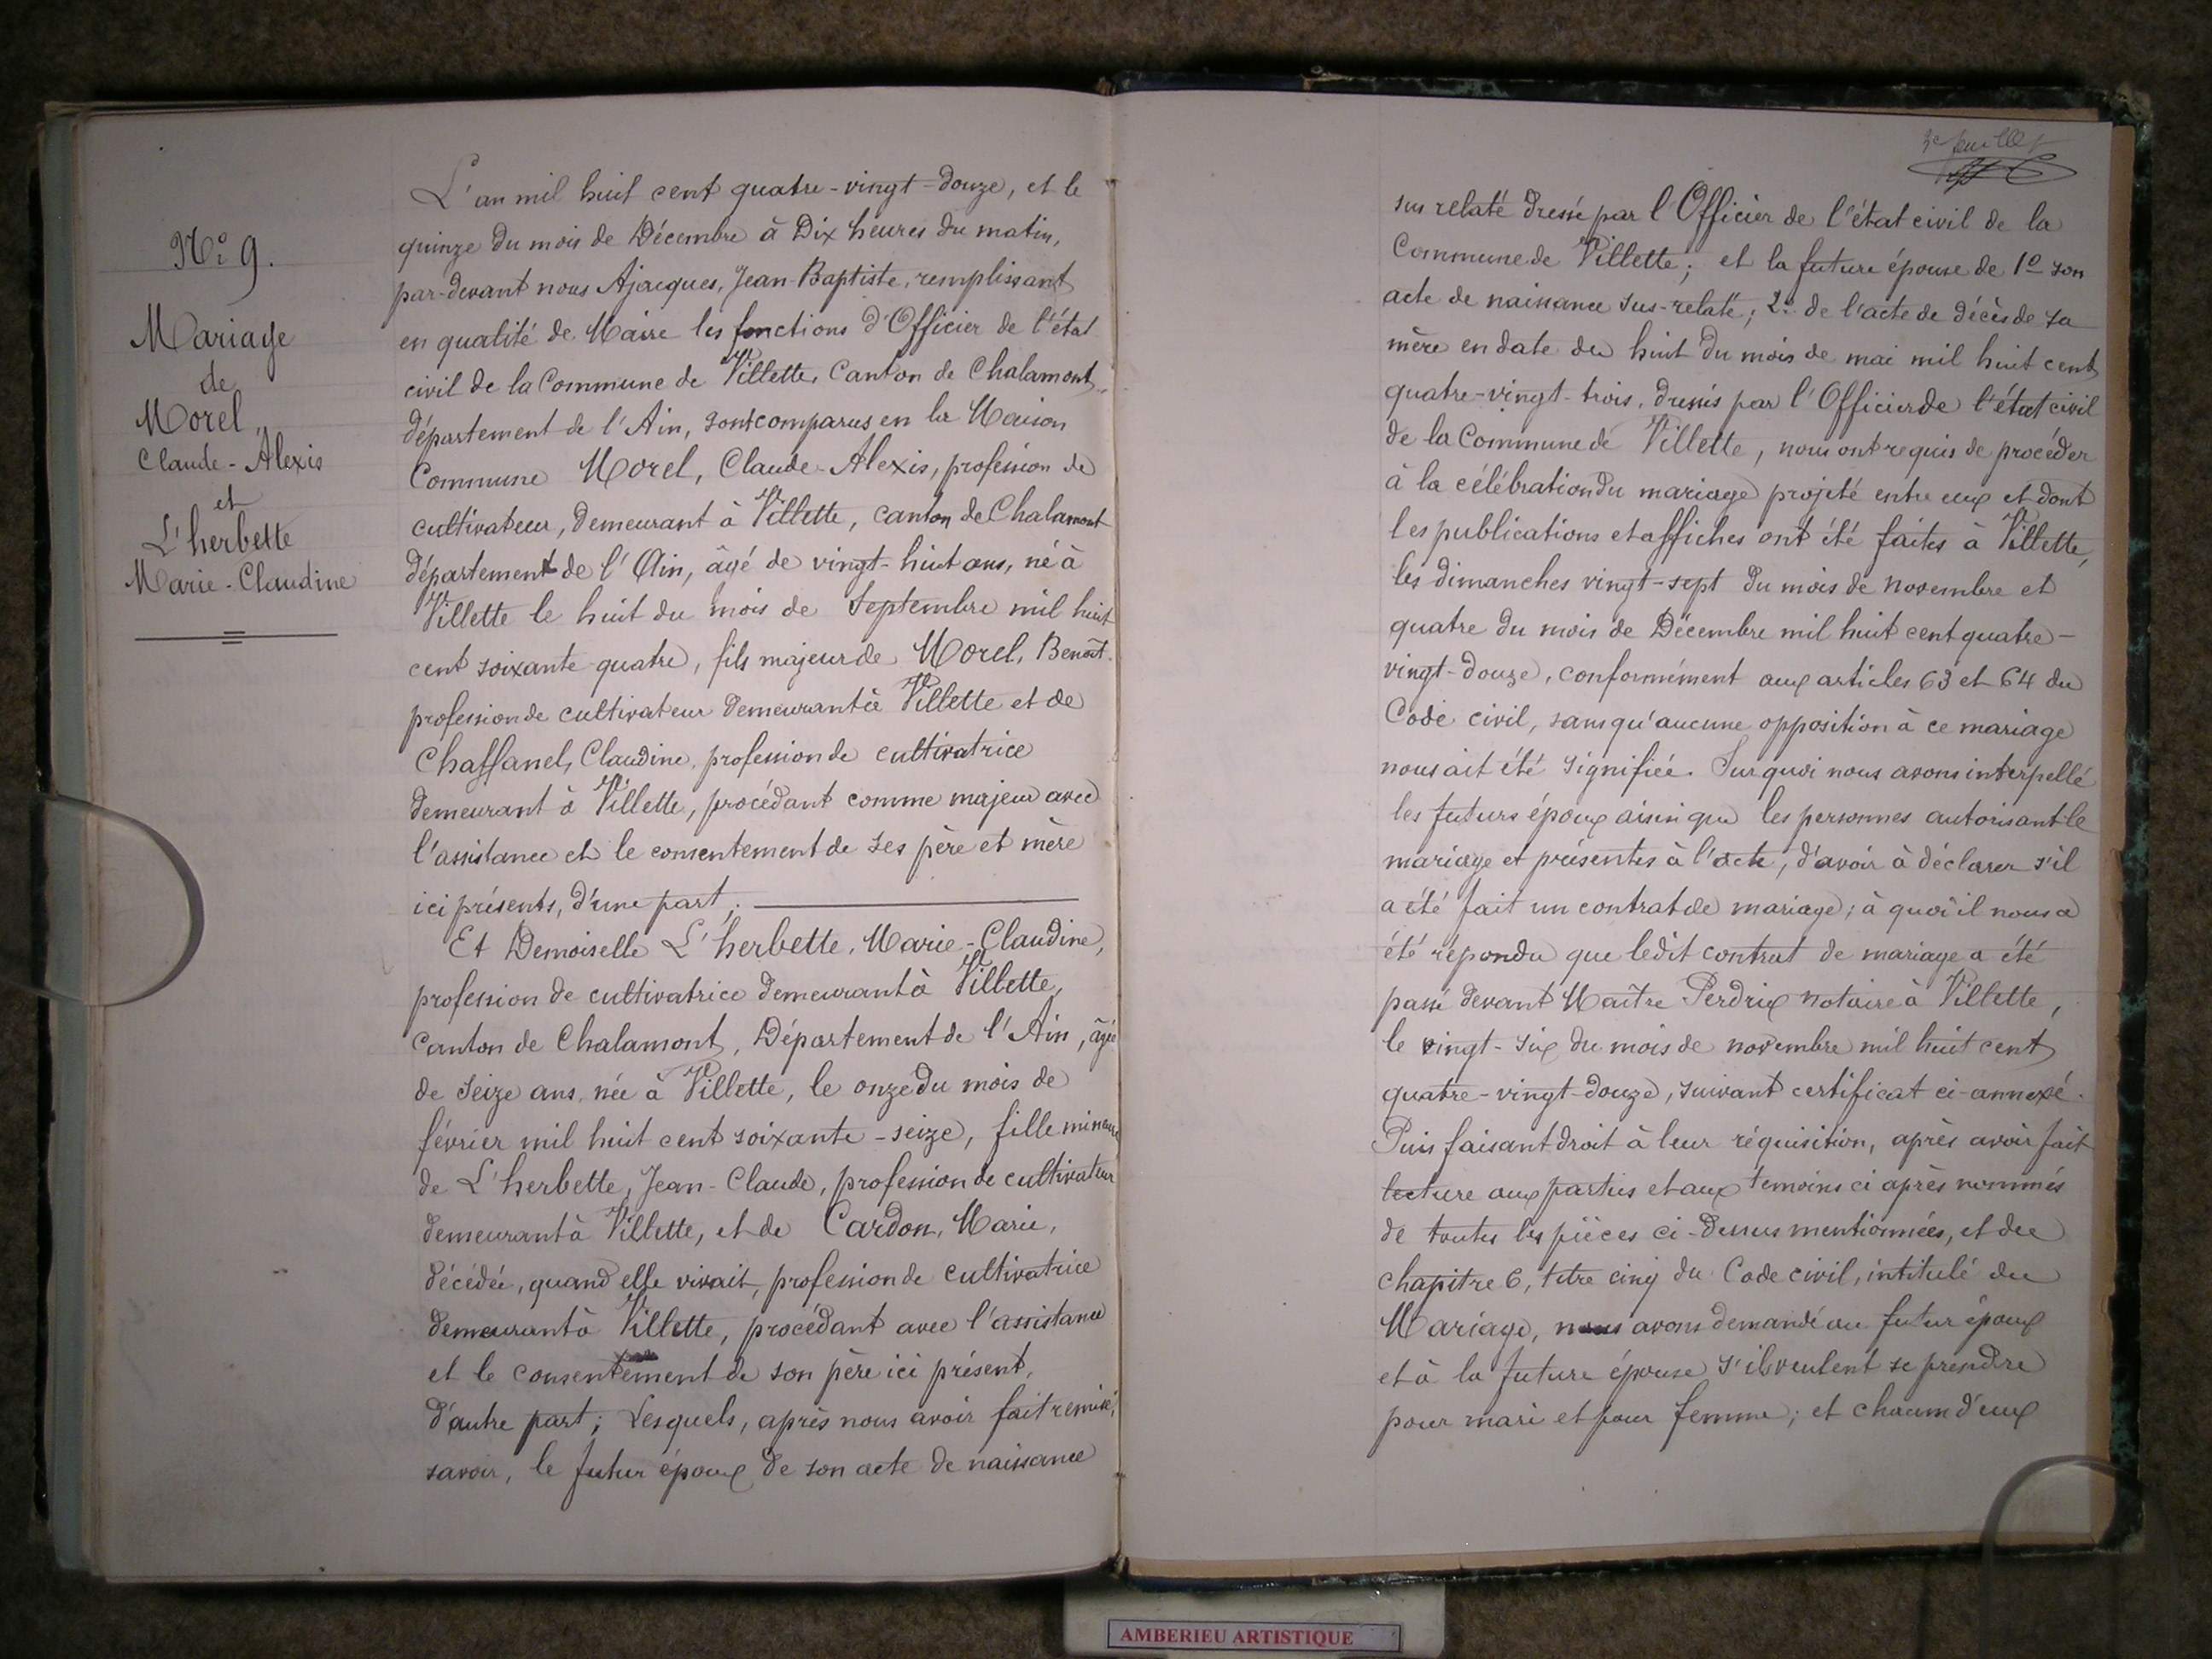 N° 9.
Mariage
de
Morel,
Claude-Alexis
et
L'herbette
Marie-Claudine
L'an mil huit cent quatre-vingt-douze, et le
quinze du mois de Décembre à Dix heures du matin,
par-devant nous Ajacques, Jean-Baptiste, remplissant
en qualité de Maire les fonctions d'Officier de l'état
civil de la Commune de Villette, Canton de Chalamont,
département de l'Ain, sont comparus en la Maison
Commune Morel, Claude-Alexis, profession de
cultivateur, demeurant à Villette, canton de Chalamont
département de l'Ain, âgé de vingt-huit ans, né à
Villette le huit du mois de Septembre mil huit
cent soixante-quatre, fils majeur de Morel, Benoît
profession de cultivateur demeurant à Villette et de
Chaffanel, Claudine, profession de cultivatrice
demeurant à Villette, procédant comme majeur avec
l'assistance et le consentement de ses père et mère
ici présents, d'une part;
Et Demoiselle L'herbette, Marie-Claudine,
profession de cultivatrice demeurant à Villette,
Canton de Chalamont, Département de l'Ain, âgée
de seize ans, née à Villette, le onze du mois de
février mil huit cent soixante-seize, fille mineure
de L'herbette, Jean-Claude, profession de cultivateur
demeurant à Villette, et de Cardon, Marie,
décédée, quand elle vivait, profession de cultivatrice
demeurant à Villette, procédant avec l'assistance
et le consentement de son père ici présent,
d'autre part; Lesquels, après nous avoir fait remise,
savoir, le futur époux de son acte de naissance
3e feuillet
sus relaté dressé par l'Officier de l'état civil de la
Commune de Villette; et la future épouse de 1° son
acte de naissance sus-relaté; 2° de l'acte de décès de sa
mère en date du huit du mois de mai mil huit cent
quatre-vingt-trois, dressés par l'Officier de l'état civil
de la Commune de Villette, nous ont requis de procéder
à la célébration du mariage projeté entre eux et dont
les publications et affiches ont été faites à Villette,
les dimanches vingt-sept du mois de novembre et
quatre du mois de Décembre mil huit cent quatre-
vingt-douze, conformément aux articles 63 et 64 du
Code civil, sans qu'aucune opposition à ce mariage
nous ait été signifiée. Sur quoi nous avons interpellé
les futurs époux aisin que les personnes autorisant le
mariage et présentes à l'acte, d'avoir à déclarer s'il
a été fait un contrat de mariage; à quoi il nous a
été répondu que ledit contrat de mariage a été
passé devant Maître Perdrix notaire à Villette,
le vingt-six du mois de novembre mil huit cent
quatre-vingt-douze, suivant certificat ci-annexé.
Puis faisant droit à leur réquisition, après avoir fait
lecture aux parties et aux témoins ci après nommés
de toutes les pièces ci-dessus mentionnées, et du
chapitre 6, titre cinq du Code civil, intitulé du
Mariage, nous avons demandé au futur époux
et à la future épouse s'ils veulent se prendre
pour mari et pour femme; et chacun d'eux
AMBERIEU ARTISTIQUE